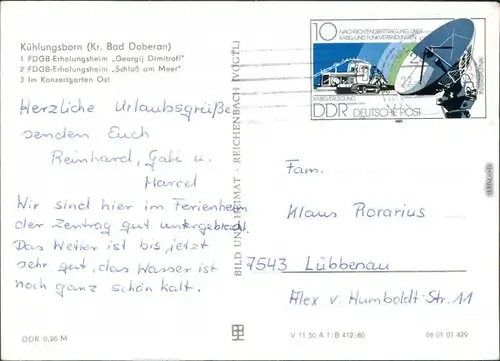 Kühlungsborn (Kr. Bad Doberan)
1 FDGB-Erholungsheim „Georgij Dimitroff"
2 FDGB-Erholungsheim „Schloß am Meer"
3 Im Konzertgarten Ost
Herzliche Urlaubsgrüße
senden Euch
Reinhard, Gabi u.
Marcel
Wir sind hier im Ferienheim
der Zentrag gut untergebracht.
Das Wetter ist bis jetzt
sehr gut, das Wasser ist
noch ganz schön kalt.
DDR 0,20 M
BILD UND HEIMAT · REICHENBACH (VOGTL)
10
NACHRICHTENÜBERTRAGUNG ÜBER
KABEL-UND FUNKVERBINDUNGEN
KABELVERLEGUNG
DDR DEUTSCHE POST
Fam.
Klaus Rorarius
7543 Lübbenau
Alex v. Humboldt-Str. 11
V 11 50 A 1/B 412/80
06 01 01 429